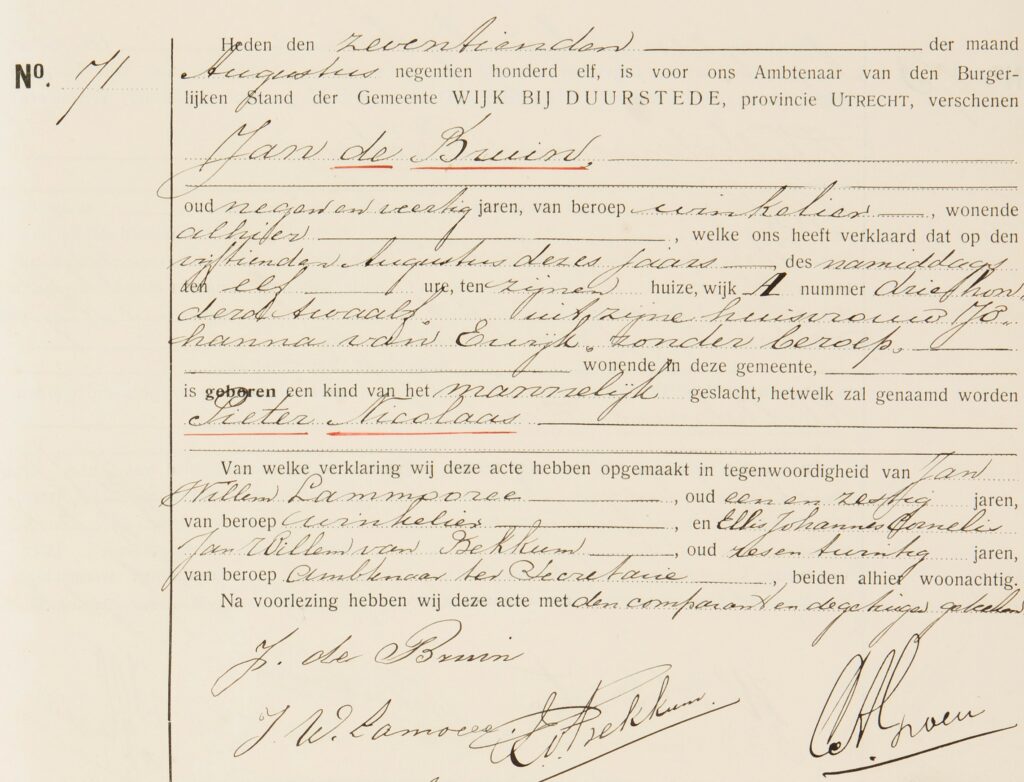 No. 71
Heden den zeventienden der maand
Augustus negentien honderd elf, is voor ons Ambtenaar van den Burger-
lijken Stand der Gemeente WIJK BIJ DUURSTEDE, provincie UTRECHT, verschenen
Jan de Bruin,
oud negen en veertig jaren, van beroep winkelier, wonende
alhier, welke ons heeft verklaard dat op den
vijftienden Augustus dezes jaars des namiddags
ten elf ure, ten zijnen huize, wijk A nummer driehon-
derd twaalf, uit zijne huisvrouw Jo-
hanna van Ewijk, zonder beroep,
wonende in deze gemeente,
is geboren een kind van het mannelijk geslacht, hetwelk zal genaamd worden
Pieter Nicolaas
Van welke verklaring wij deze acte hebben opgemaakt in tegenwoordigheid van Jan
Willem, oud een en zestig jaren,
van beroep winkelier, en Ellis Johannes Cornelis
Jan Willem van Bekkum, oud zes en twintig jaren,
van beroep Ambtenaar ter Secretarie, beiden alhier woonachtig.
Na voorlezing hebben wij deze acte met den comparant en de getuigen geteekend
J. de Bruin
J. W. Bekkum